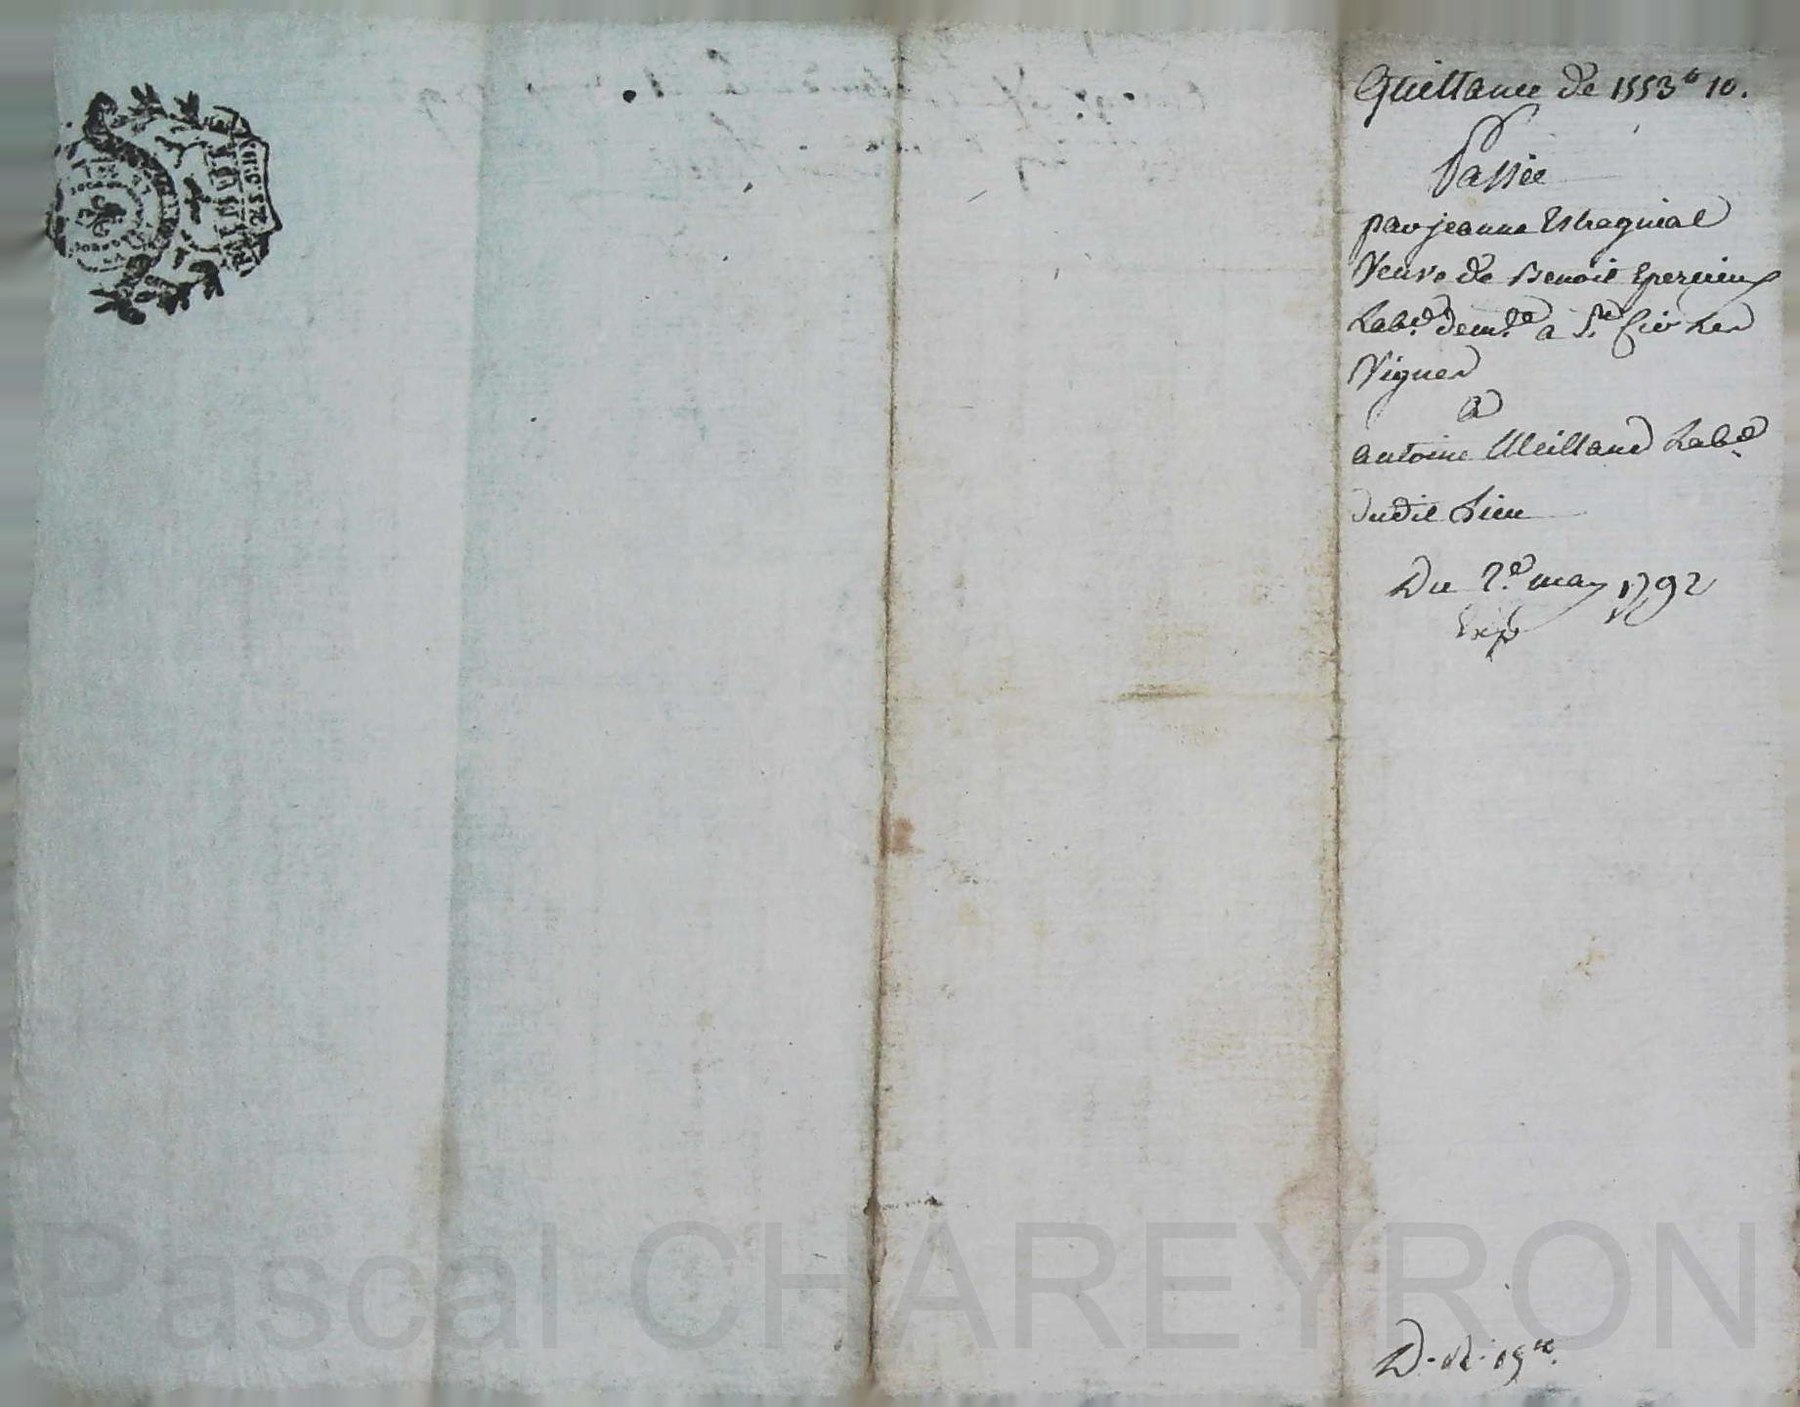 Quittance de 1553# 10.
Passée
par jeanne Estragniat
Veuve de Benoit Epercieux
Lab.r dem.te a St Cir Les
Vignes
a
antoine Meilland Lab.r
dudit Lieu
Du 2.e may 1792
Exp
Pascal CHAREYRON